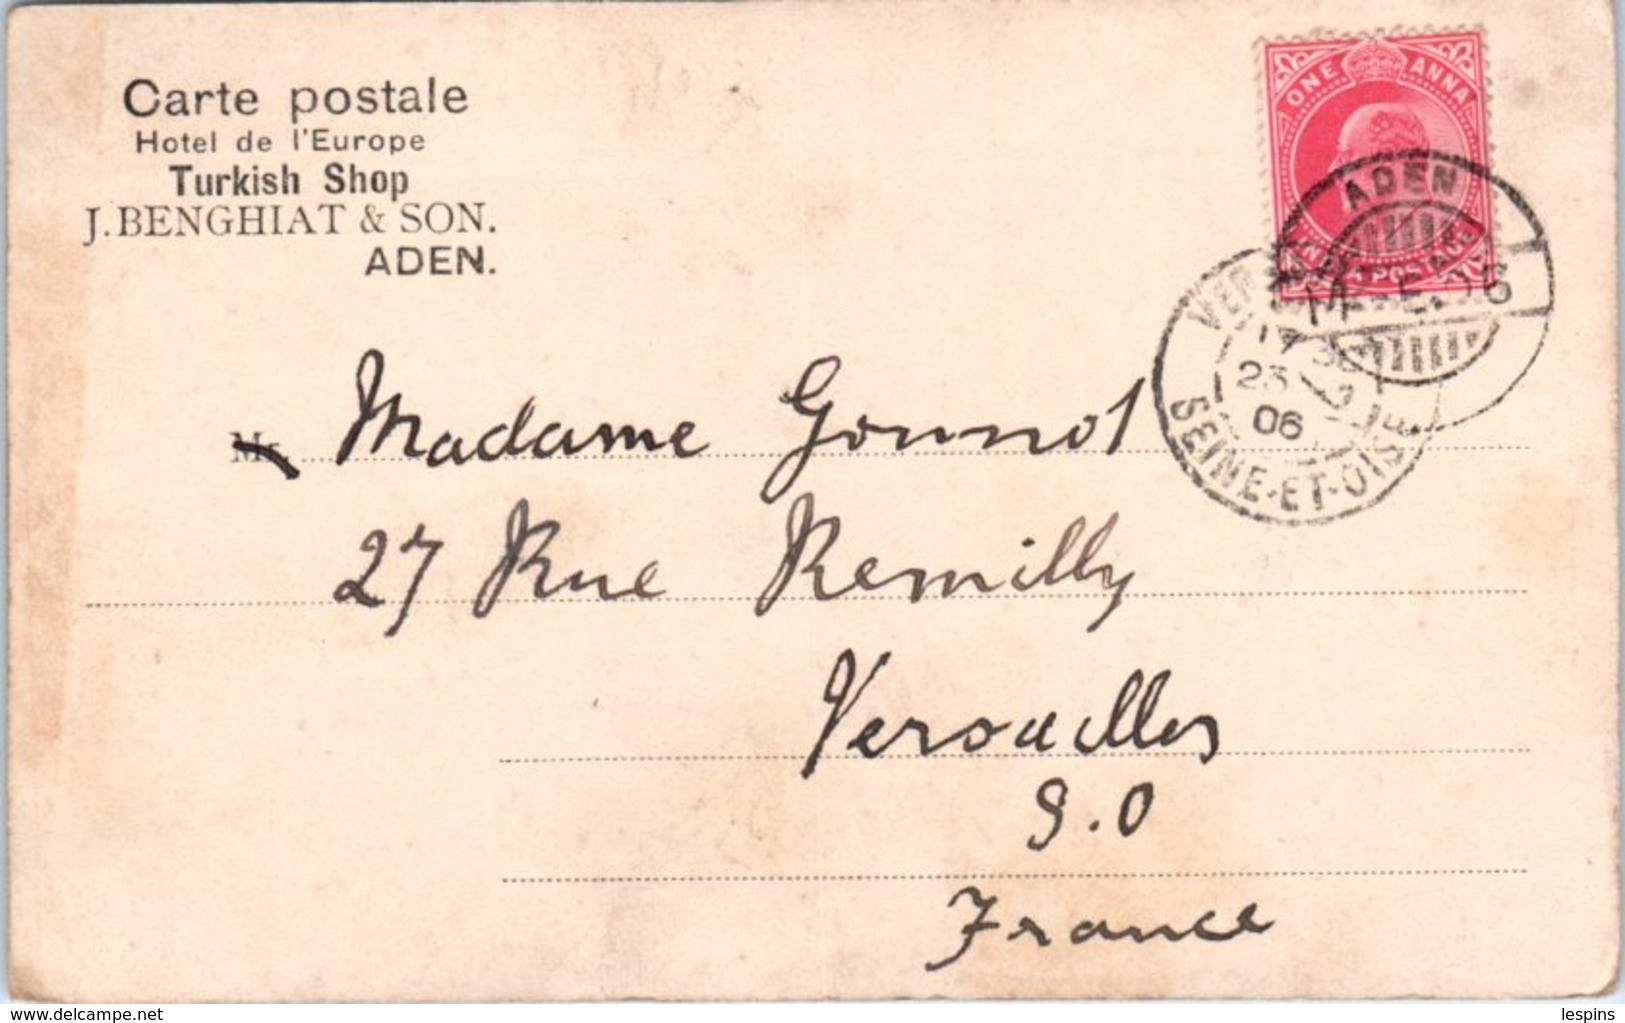 Carte postale
Hotel de l'Europe
Turkish Shop
J. BENGHIAT & SON.
ADEN.
ONE ANNA
INDIA POSTAGE
ADEN
06
SEINE-ET-OISE
23
06
Madame Gonnot
27 Rue Remilly
Versailles
S.O
France
delcampe.net
lespins